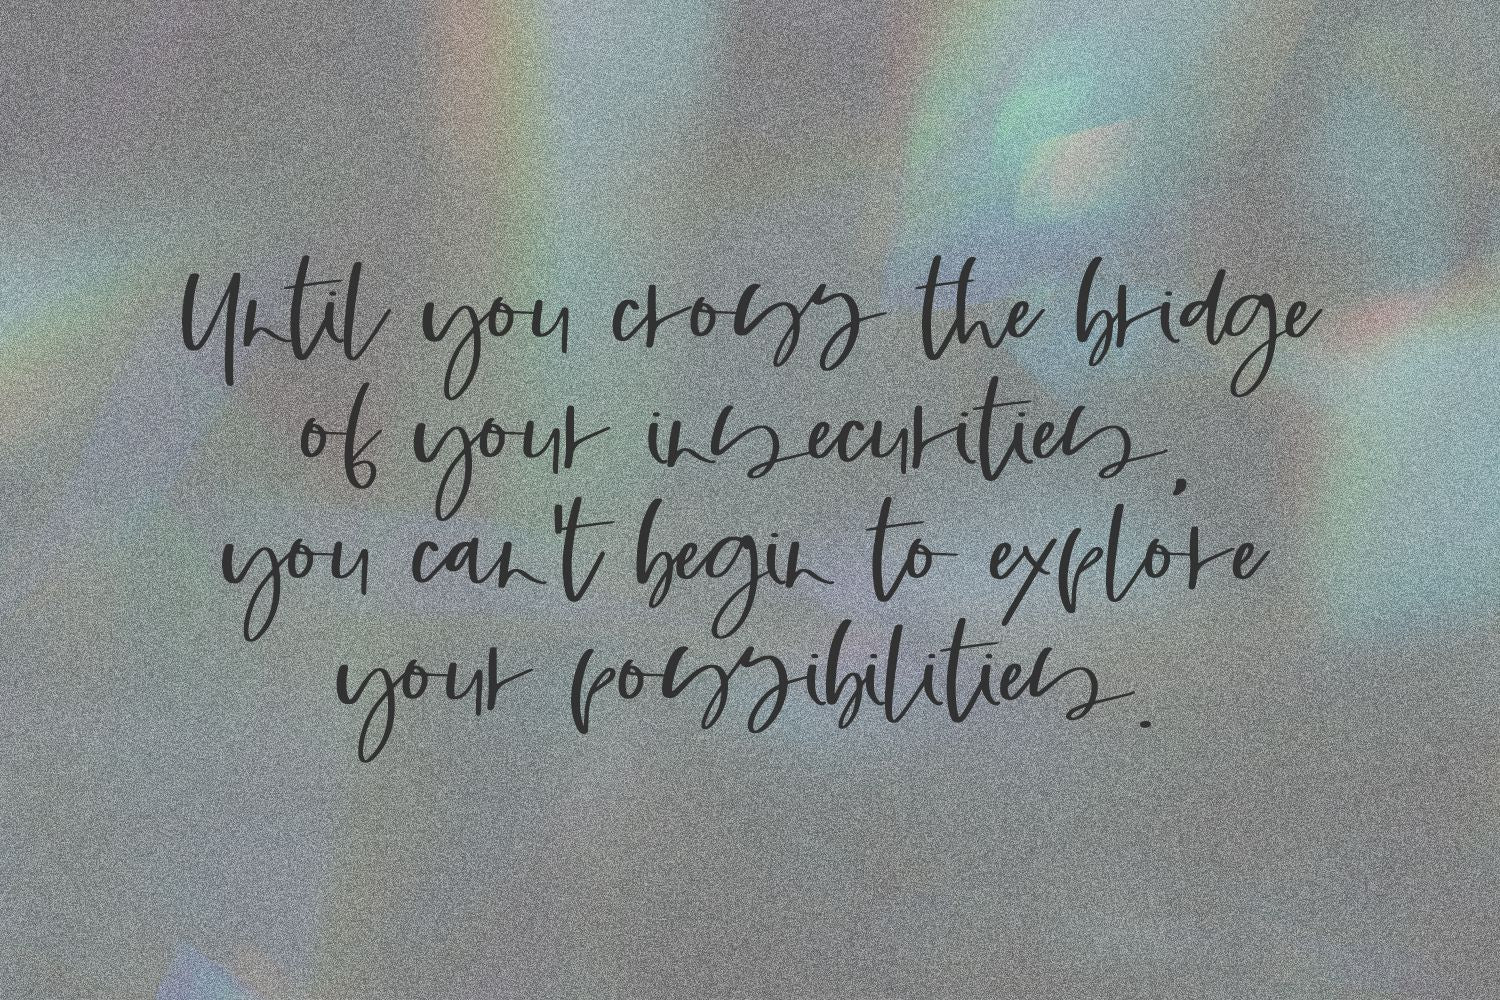 Until you cross the bridge
of your insecurities,
you can't begin to explore
your possibilities.